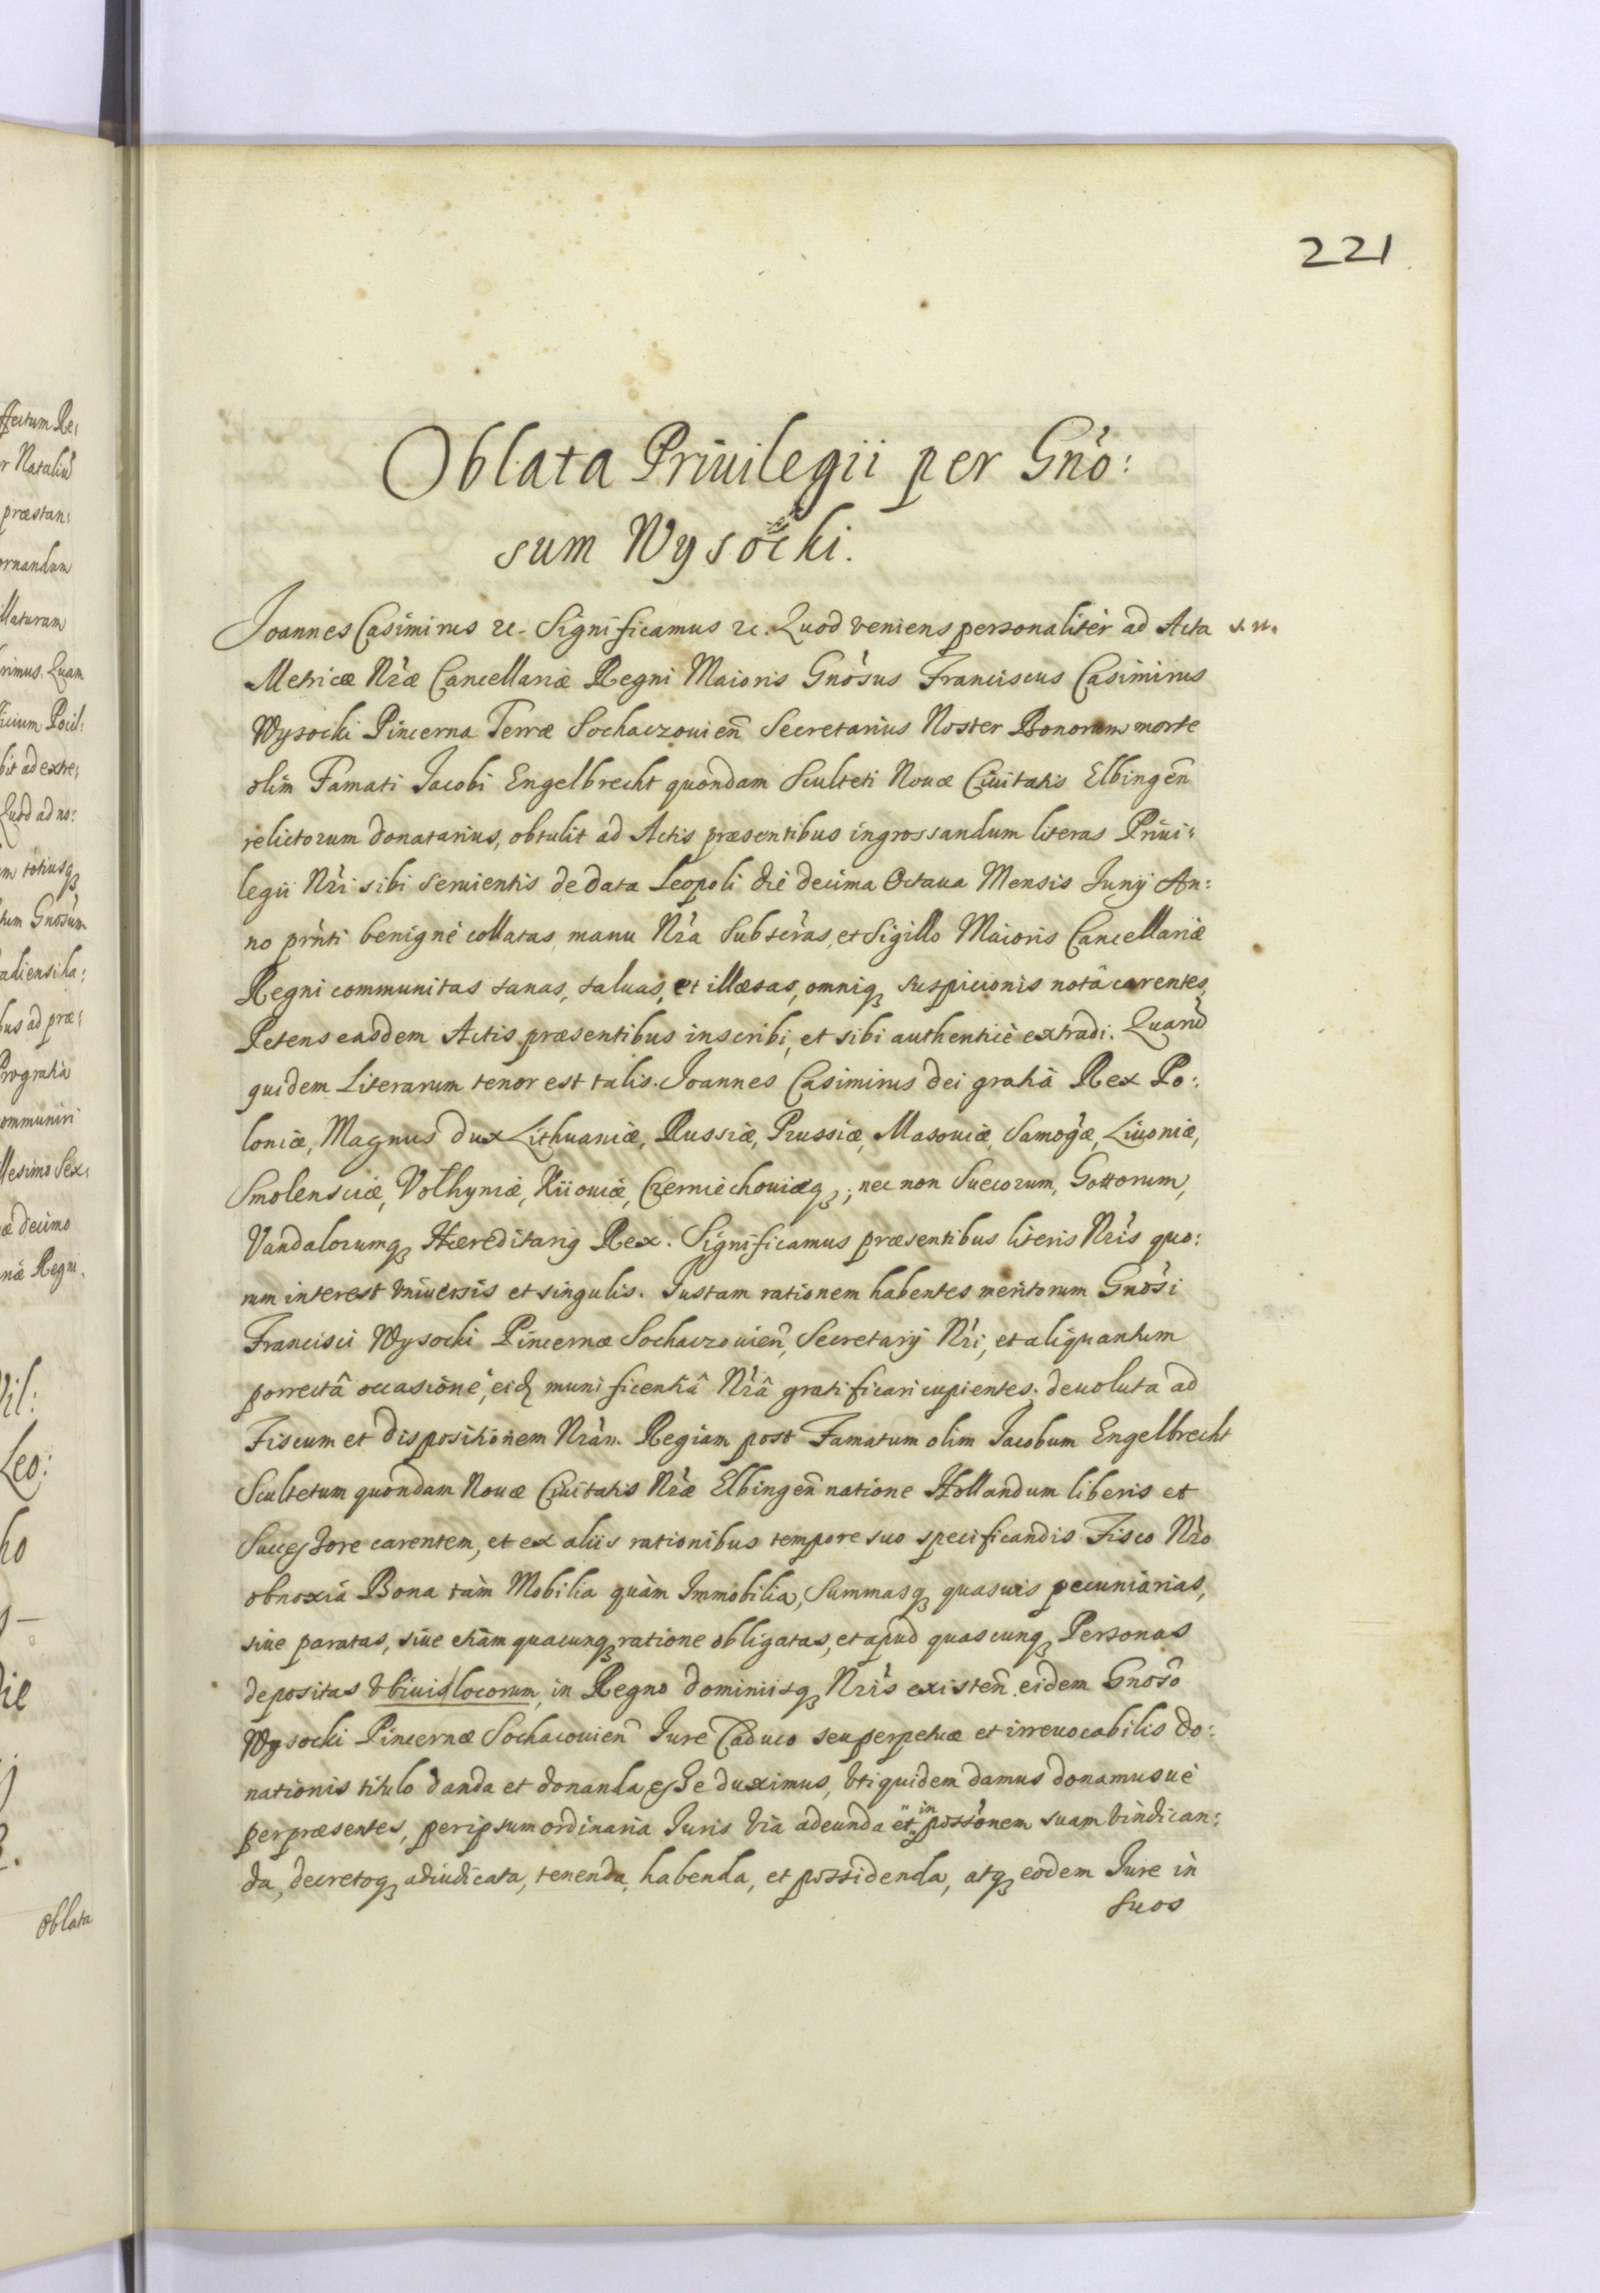 221
Oblata Priuilegii per Gno:
sum Wysocki.
Joannes Casimirus &c. Significamus &c. Quod veniens personaliter ad Acta
Metricæ Nræ Cancellariæ Regni Maioris Gnosus Franciscus Casimirus
Wysocki Pincerna Terræ Sochaczouien Secretarius Noster Bonorum morte
olim Famati Jacobi Engelbrecht quondam Sculteti Nouæ Ciuitatis Elbingen
relictorum donatarius, obtulit ad Actis præsentibus ingrossandum literas Priui:
legii Nri sibi seruientis de data Leopoli die decima Octaua Mensis Junij An:
no prnti benignè collatas, manu Nra Subscras, et Sigillo Maioris Cancellariæ
Regni communitas sanas, saluas, et illæsas, omniq suspicionis notâ carentes,
Petens easdem Actis præsentibus inscribi, et sibi authenticè extradi. Quarũ
quidem Literarum tenor est talis. Joannes Casimirus dei gratia Rex Po:
loniæ, Magnus dux Lithuaniæ, Russiæ, Prussiæ, Masouiæ, Samogæ, Liuoniæ,
Smolensciæ, Volhyniæ, Kiiouiæ, Czerniechouiæq; nec non Suecorum, Gottorum,
Vandalorumq Hæreditarig Rex. Significamus præsentibus literis Nris quo:
rum interest vniuersis et singulis. Justam rationem habentes meritorum Gnosi
Francisci Wysocki Pincernæ Sochaczouien, Secretarij Nri, et aliquantum
porrectâ occasione, eid munificentiâ Nrâ gratificari cupientes, deuoluta ad
Fiscum et dispositionem Nram Regiam post Famatum olim Jacobum Engelbrecht
Scultetum quondam Nouæ Ciuitatis Nræ Elbingen natione Hollandum liberis et
Successore carentem, et ex aliis rationibus tempore suo specificandis Fisco Nro
obnoxia Bona tàm Mobilia quàm Immobilia, Summasq quasuis pecuniarias,
siue paratas, siue etiam quacunq ratione obligatas, et apud quascunq Personas
depositas vbiuis locorum, in Regno dominiisq Nris existen. eidem Gnoso
Wysocki Pincernæ Sochacouien Jure Caduco seu perpetuæ et irreuocabilis do:
nationis titulo danda et donanda esse duximus, vti quidem damus donamusuè
per præsentes, per ipsum ordinaria Juris via adeunda et in possonem suam vindican:
da, decretoq adiudicata, tenenda, habenda, et possidenda, atq eodem Jure in
suos